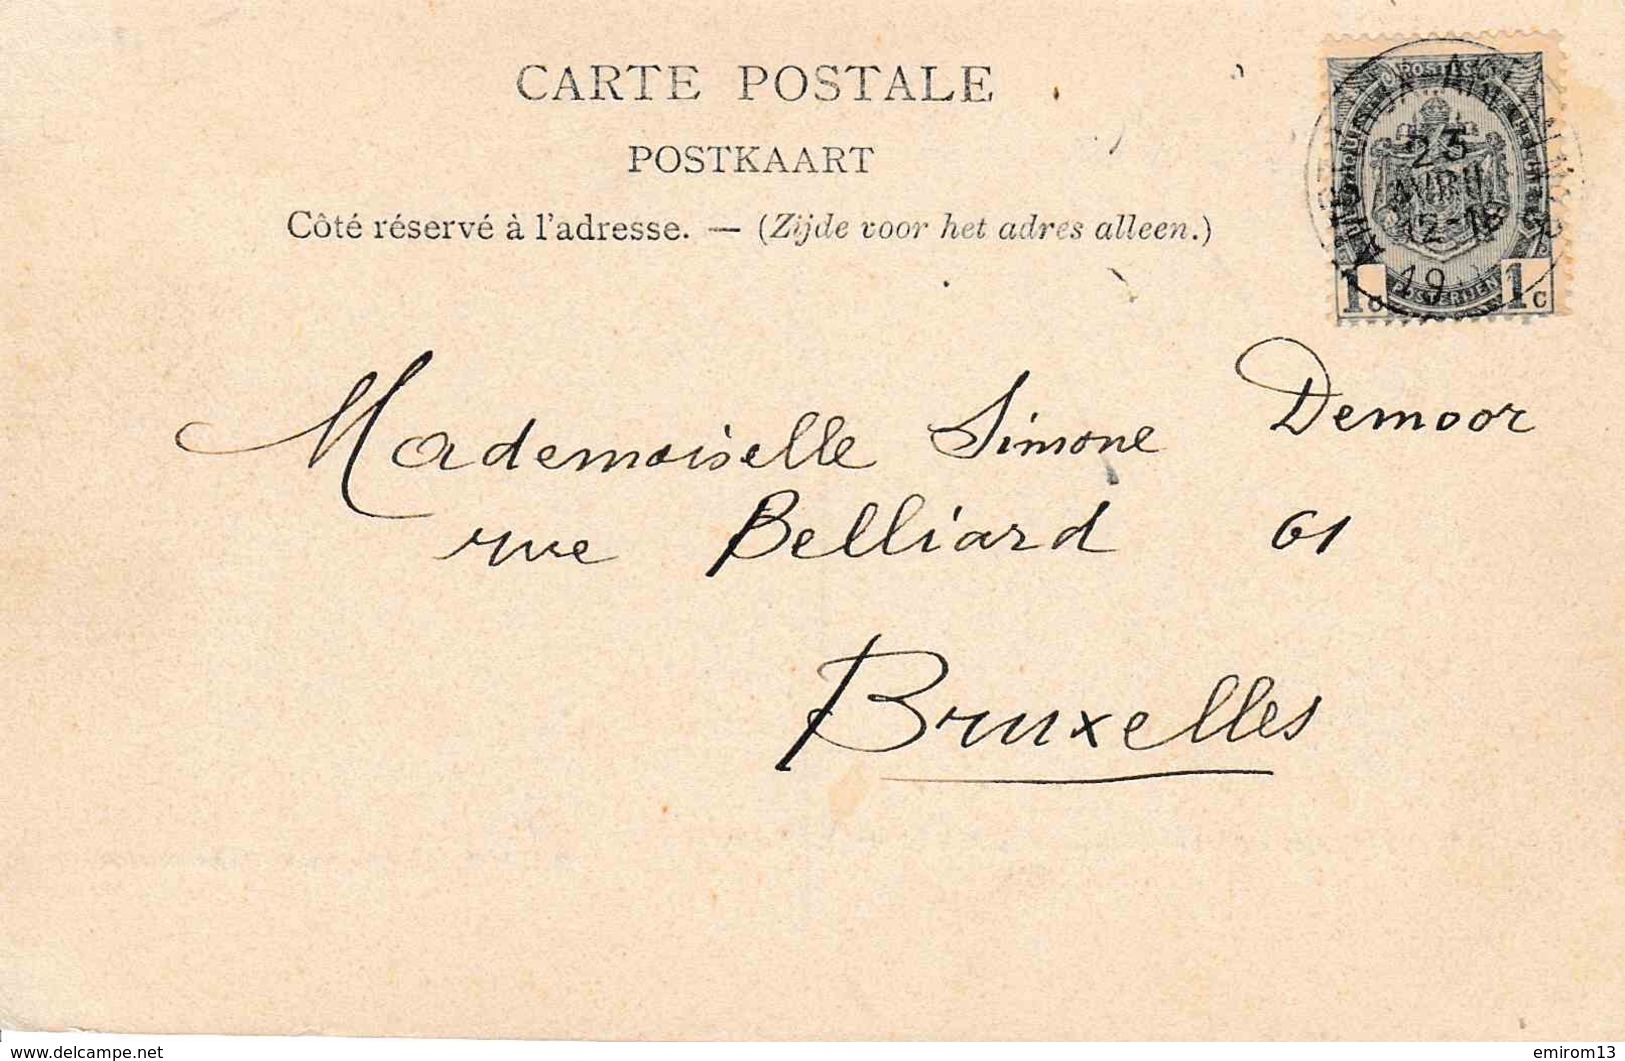 CARTE POSTALE
POSTKAART
Côté réservé à l'adresse. — (Zijde voor het adres alleen.)
23
AVRIL
12-
19
1c 1c
Mademoiselle Simone Demoor
rue Belliard 61
Bruxelles
www.delcampe.net
emirom13